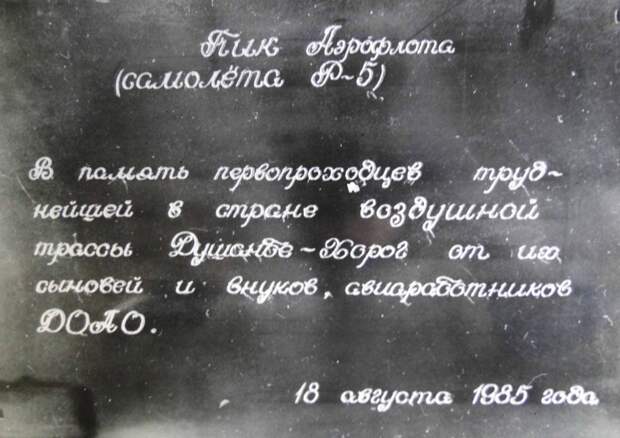 Пик Аэрофлота
(самолёта Р-5)
В память первопроходцев труд-
нейшей в стране воздушной
трассы Душанбе-Хорог от их
сыновей и внуков, авиаработников
ДОАО.
18 августа 1985 года